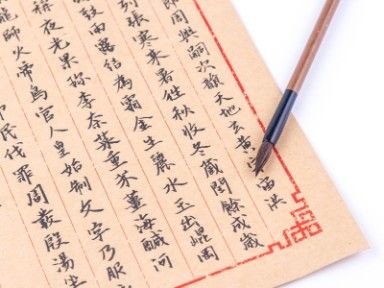 郎周興嗣次韻天地玄黃宙洪
列張寒來暑往秋收冬藏閏餘成歲
雨露結為霜金生麗水玉出崐岡
稱夜光果珍李柰菜重芥薑海鹹河
龍師火帝鳥官人皇始制文字乃服
民伐罪周發殷湯坐